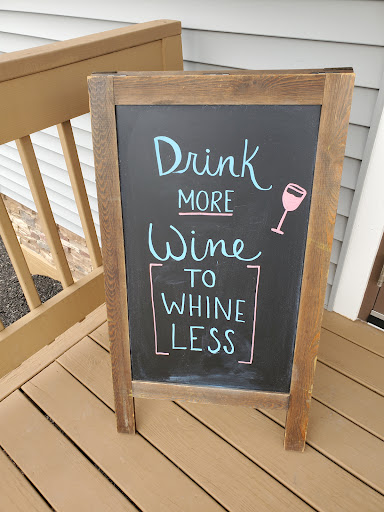 Drink
MORE
Wine
TO
WHINE
LESS